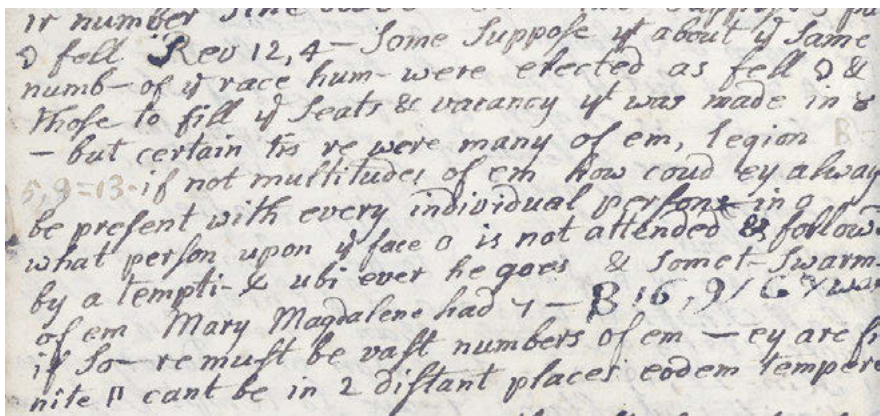 ir number
fell Rev 12, 4 — Some Suppose yt about ye Same
numb— of ye race hum— were elected as fell &
those to fill ye Seats & vacancy yt was made in
— but certain tis re were many of em, legion B
5, 9=13. if not multitudes of em how coud ey alway
be present with every individual person in
what person upon ye face is not attended & follow
by a tempti— & ubi ever he goes & Somet— Swarm
of em Mary Magdalene had 7 — B 16, 9
if So— re must be vast numbers of em — ey are fi
nite cant be in 2 distant places eodem tempere